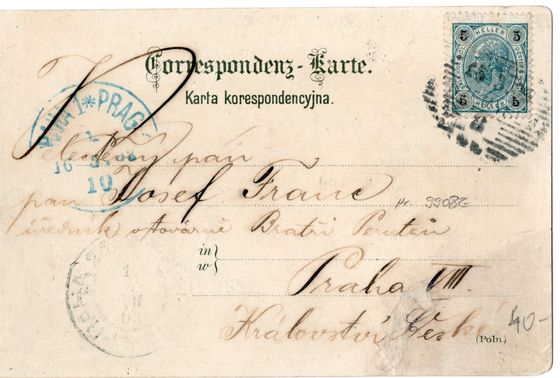 5 HELLER 5
5 HELLER 5
Correspondenz-Karte.
Karta korespondencyjna.
PRAHA 1 * PRAG
10
pán
pan Josef Franc
Nr. 9908G
úředník v továrně Bratří Perutzů
in
w
Praha VIII
Království České
(Poln.)
40-